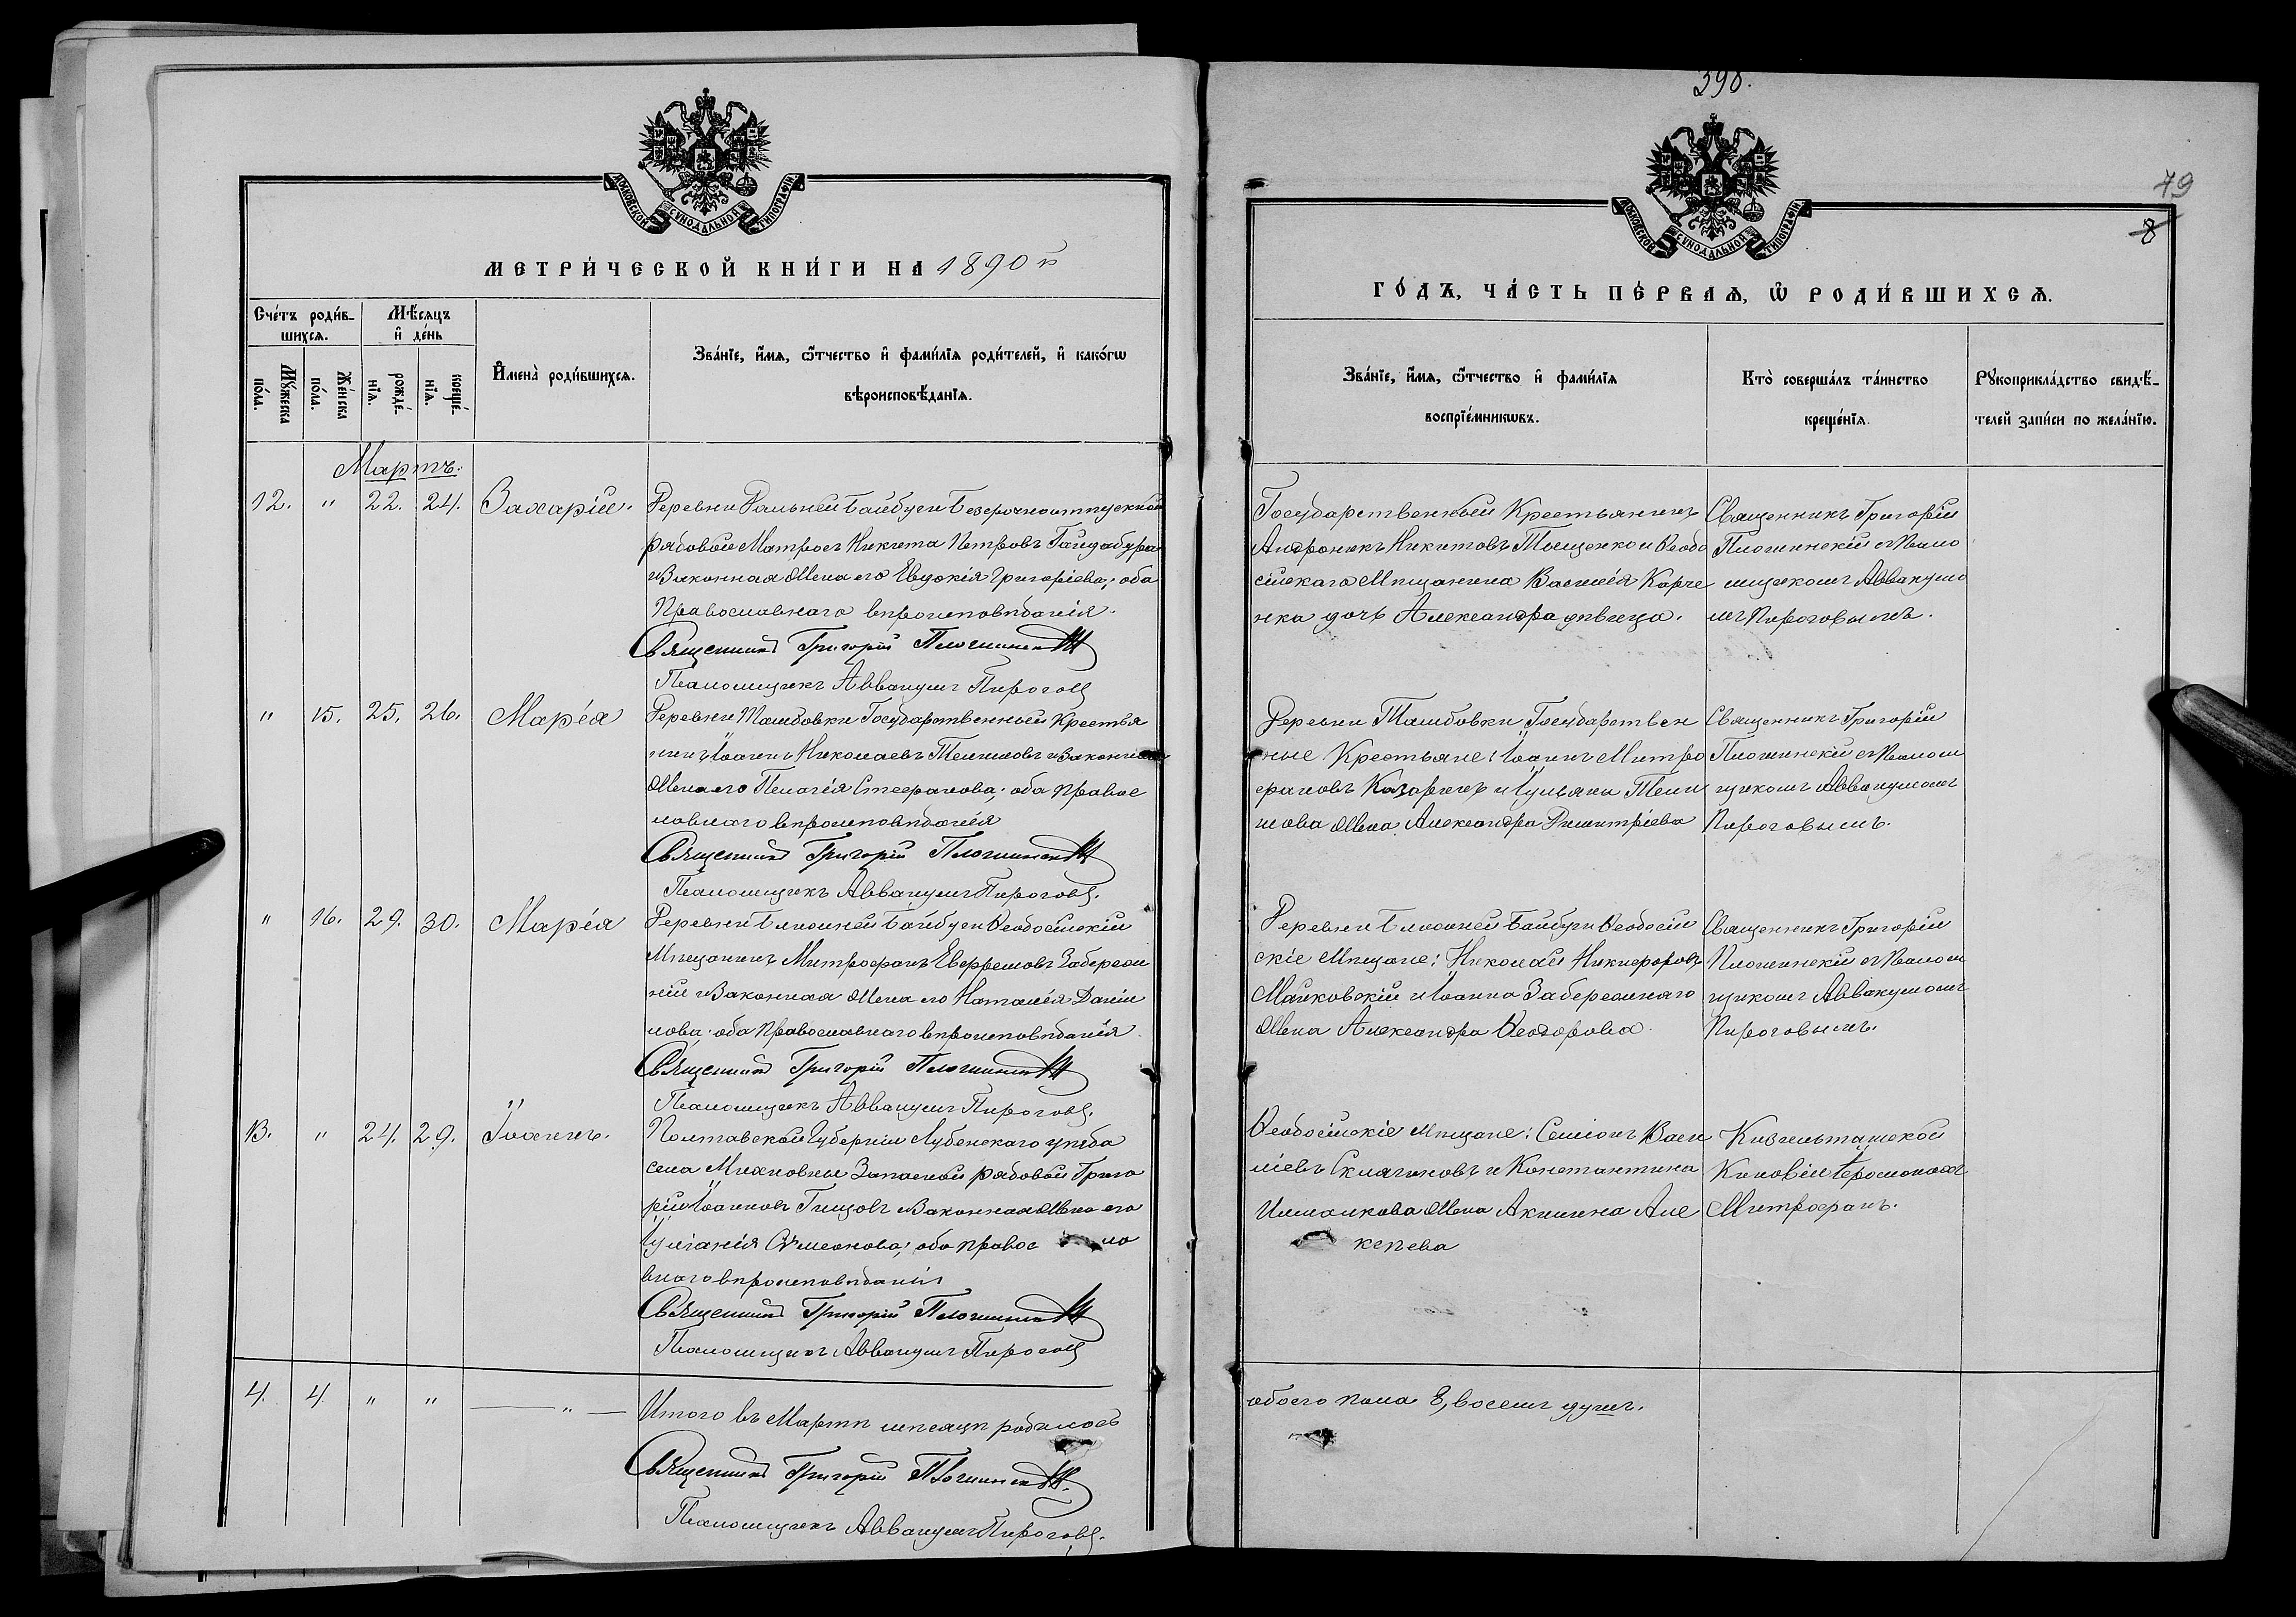 398.
79
8
МОСКОВСКОЙ СѴНОДАЛЬНОЙ ТИПОГРАФІИ
МЕТРИ́ЧЕСКОЙ КНИ́ГИ НА 1890 й
Сче́тъ роди́в-
шихсѧ.
Мꙋ́жеска по́ла.
Же́нска по́ла.
Мѣ́сяцъ
и҆ де́нь
рожде́-
нїѧ.
креще́-
нїѧ.
И҆мена̀ роди́вшихсѧ.
Зва́нїе, и҆́мѧ, ѻ҆́тчество и҆ фами́лїѧ роди́телей, и҆ како́гѡ
вѣроисповѣ́данїѧ.
Мартъ.
12. " 22. 24. Захарій. Деревни Дальней Байбуги безсрочноотпускной
рядовой Матросъ Никита Петровъ Гайдабура
и Законная Жена его Евдокія Григоріева; оба
Православнаго вѣроисповѣданія.
Священникъ Григорій
Псаломщикъ Аввакумъ Пироговъ
" 15. 25. 26. Марія Деревни Тамбовки Государственный Крестья
нинъ Іоаннъ Николаевъ и Законная
Жена его Пелагія Стефанова; оба Правос
лавнаго вѣроисповѣданія
Священникъ Григорій
Псаломщикъ Аввакумъ Пироговъ.
" 16. 29. 30. Марія Деревни Ближней Байбуги Ѳеодосійскій
Мѣщанинъ Митрофанъ Евфремовъ Забереж
ній и Законная Жена его Наталія Даніи
лова; оба Православнаго вѣроисповѣданія.
Священникъ Григорій
Псаломщикъ Аввакумъ Пироговъ.
13. " 24. 29. Іоаннъ. Полтавской Губерніи Лубенскаго уѣзда
села Запасной рядовой Григо
рій Іоанновъ и Законная Жена его
Іуліанія Симеонова; оба Правосла
внаго вѣроисповѣданія
Священникъ Григорій
Псаломщикъ Аввакумъ Пироговъ
4. 4. " " — " — Итого въ Мартѣ мѣсяцѣ родилось
Священникъ Григорій
Псаломщикъ Аввакумъ Пироговъ.
МОСКОВСКОЙ СѴНОДАЛЬНОЙ ТИПОГРАФІИ
ГО́ДЪ, ЧА́СТЬ ПЕ́РВАѦ, Ѡ҆ РОДИ́ВШИХСѦ.
Зва́нїе, и҆́мѧ, ѻ҆́тчество и҆ фами́лїѧ
воспрїе́мникѡвъ.
Кто̀ соверша́лъ та́инство
креще́нїѧ.
Рꙋкоприкла́дство свидѣ́-
телей за́писи по жела́нїю.
Государственный Крестьянинъ
Андроникъ Никитовъ Тоцченко и Ѳеодо
сійскаго Мѣщанина Василія Карче
нка дочь Александра дѣвица.
Священникъ Григорій
съ Псало
мщикомъ Аввакумо
мъ Пироговымъ.
Деревни Тамбовки Государствен
ные Крестьяне: Іоаннъ Митро
фановъ Казаринъ и Іульяна
Жена Александра Димитріева
Священникъ Григорій
съ Псалом
щикомъ Аввакумомъ
Пироговымъ.
Деревни Ближней Байбуги Ѳеодосій
скіе Мѣщане: Николай Никифоровъ
Майковскій и Іоанна Забережняго
Жена Александра Ѳеодорова.
Священникъ Григорій
съ Псалом
щикомъ Аввакумомъ
Пироговымъ.
Ѳеодосійскіе мѣщане: Симіонъ Васи
ліевъ и Константина
Жена Акилина Але
ксѣева
Кизильташской
Киновіи Іеромонахъ
Митрофанъ.
обоего пола 8, восемь душъ.